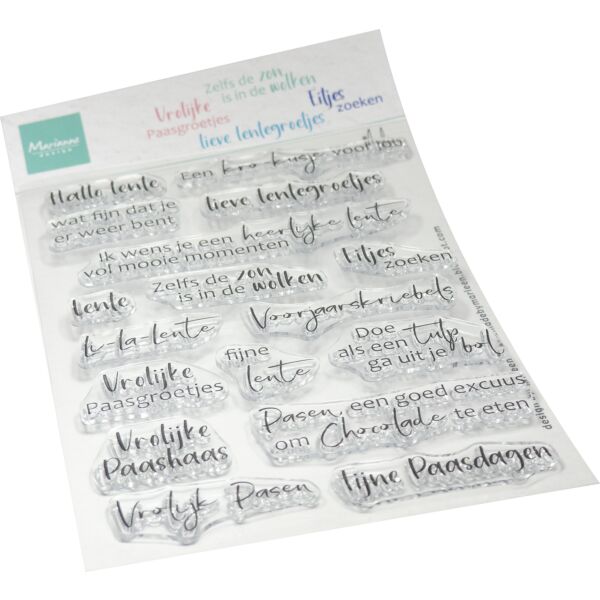 Zelfs de zon
is in de wolken
Vrolijke
Paasgroetjes
Eitjes
zoeken
lieve lentegroetjes
Marianne
DESIGN
Hallo lente
wat fijn dat je
er weer bent
Een kro-kusje voor jou
lieve lentegroetjes
Ik wens je een heerlijke lente
vol mooie momenten
Eitjes
zoeken
Zelfs de zon
is in de wolken
lente
Voorjaarskriebels
li-la-lente
fijne
lente
Doe
als een tulp
ga uit je bol
Vrolijke
Paasgroetjes
Pasen, een goed excuus
om Chocolade te eten
Vrolijke
Paashaas
fijne Paasdagen
Vrolijk Pasen
design